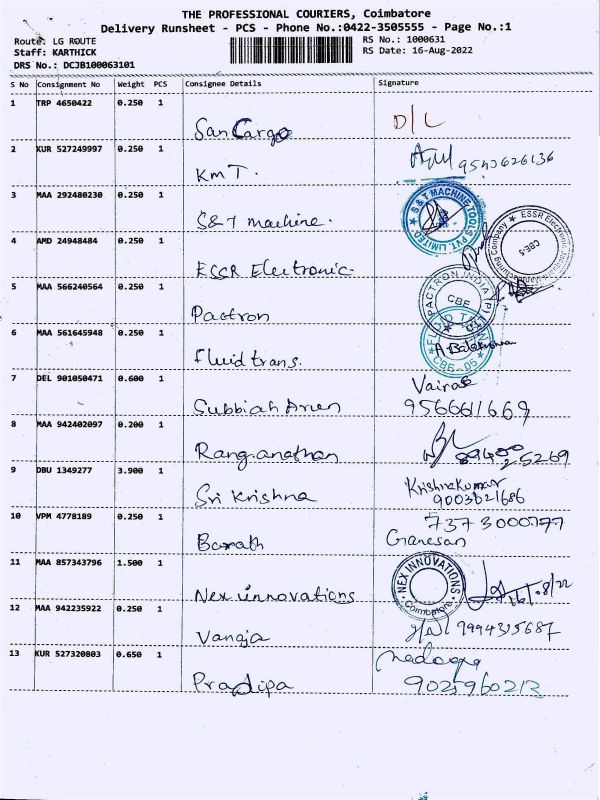 THE PROFESSIONAL COURIERS, Coimbatore
Delivery Runsheet - PCS - Phone No.:0422-3505555 - Page No.:1
Route: LG ROUTE
Staff: KARTHICK
DRS No.: DCJB100063101
RS No.: 1000631
RS Date: 16-Aug-2022
S No Consignment No Weight PCS Consignee Details Signature
1 TRP 4650422 0.250 1 San Cargo D/L
2 KUR 527249997 0.250 1 KMT.
3 MAA 292480230 0.250 1 S&T machine. S & T MACHINE TOOLS PVT. LIMITED
4 AMD 24948484 0.250 1 ESSR Electronic. ESSR Electronic Company CBE-5
5 MAA 566240564 0.250 1 Pactron PACTRON INDIA (P) CBE
6 MAA 561645948 0.250 1 fluid trans. CBE-05
7 DEL 901050471 0.600 1 Subbiah Arun
9566611669
8 MAA 942402097 0.200 1 Ranganathan
9 DBU 1349277 3.900 1 Sri Krishna Krishnakumar
9003021686
10 VPM 4778189 0.250 1 Barath 7373000777
Ganesan
11 MAA 857343796 1.500 1 Nex innovations NEX INNOVATIONS Coimbatore
12 MAA 942235922 0.250 1 Vanaja
13 KUR 527320803 0.650 1 Pradipa